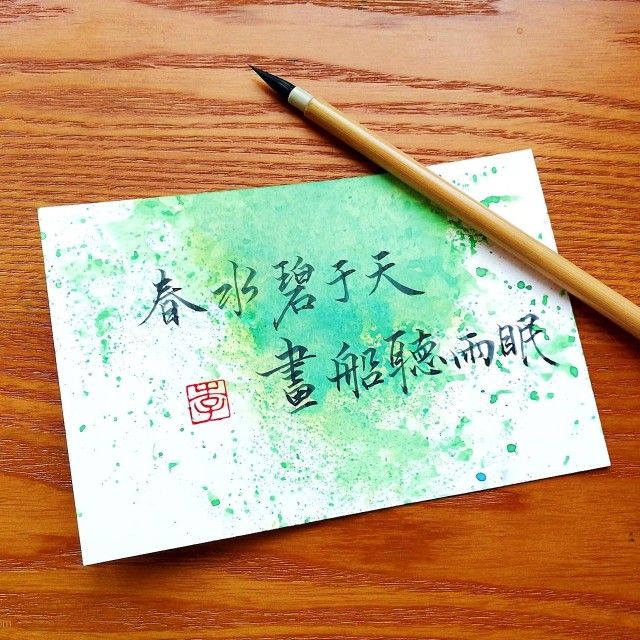 春水碧于天
畫船聽雨眠